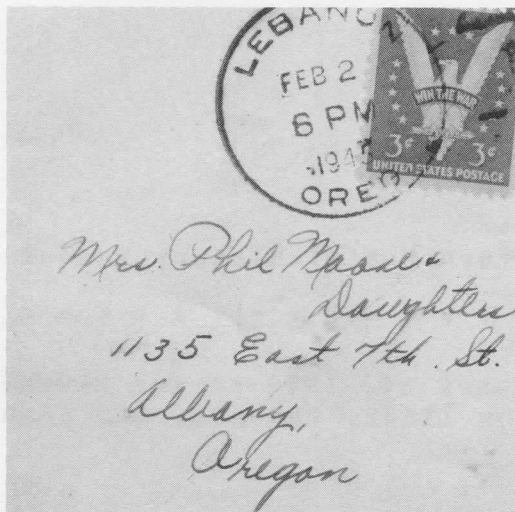 LEBANON
FEB 2
6 PM
OREG
WIN THE WAR
3¢ 3¢
UNITED STATES POSTAGE
Mrs. Phil Moose &
Daughters
1135 East 7th. St.
Albany,
Oregon